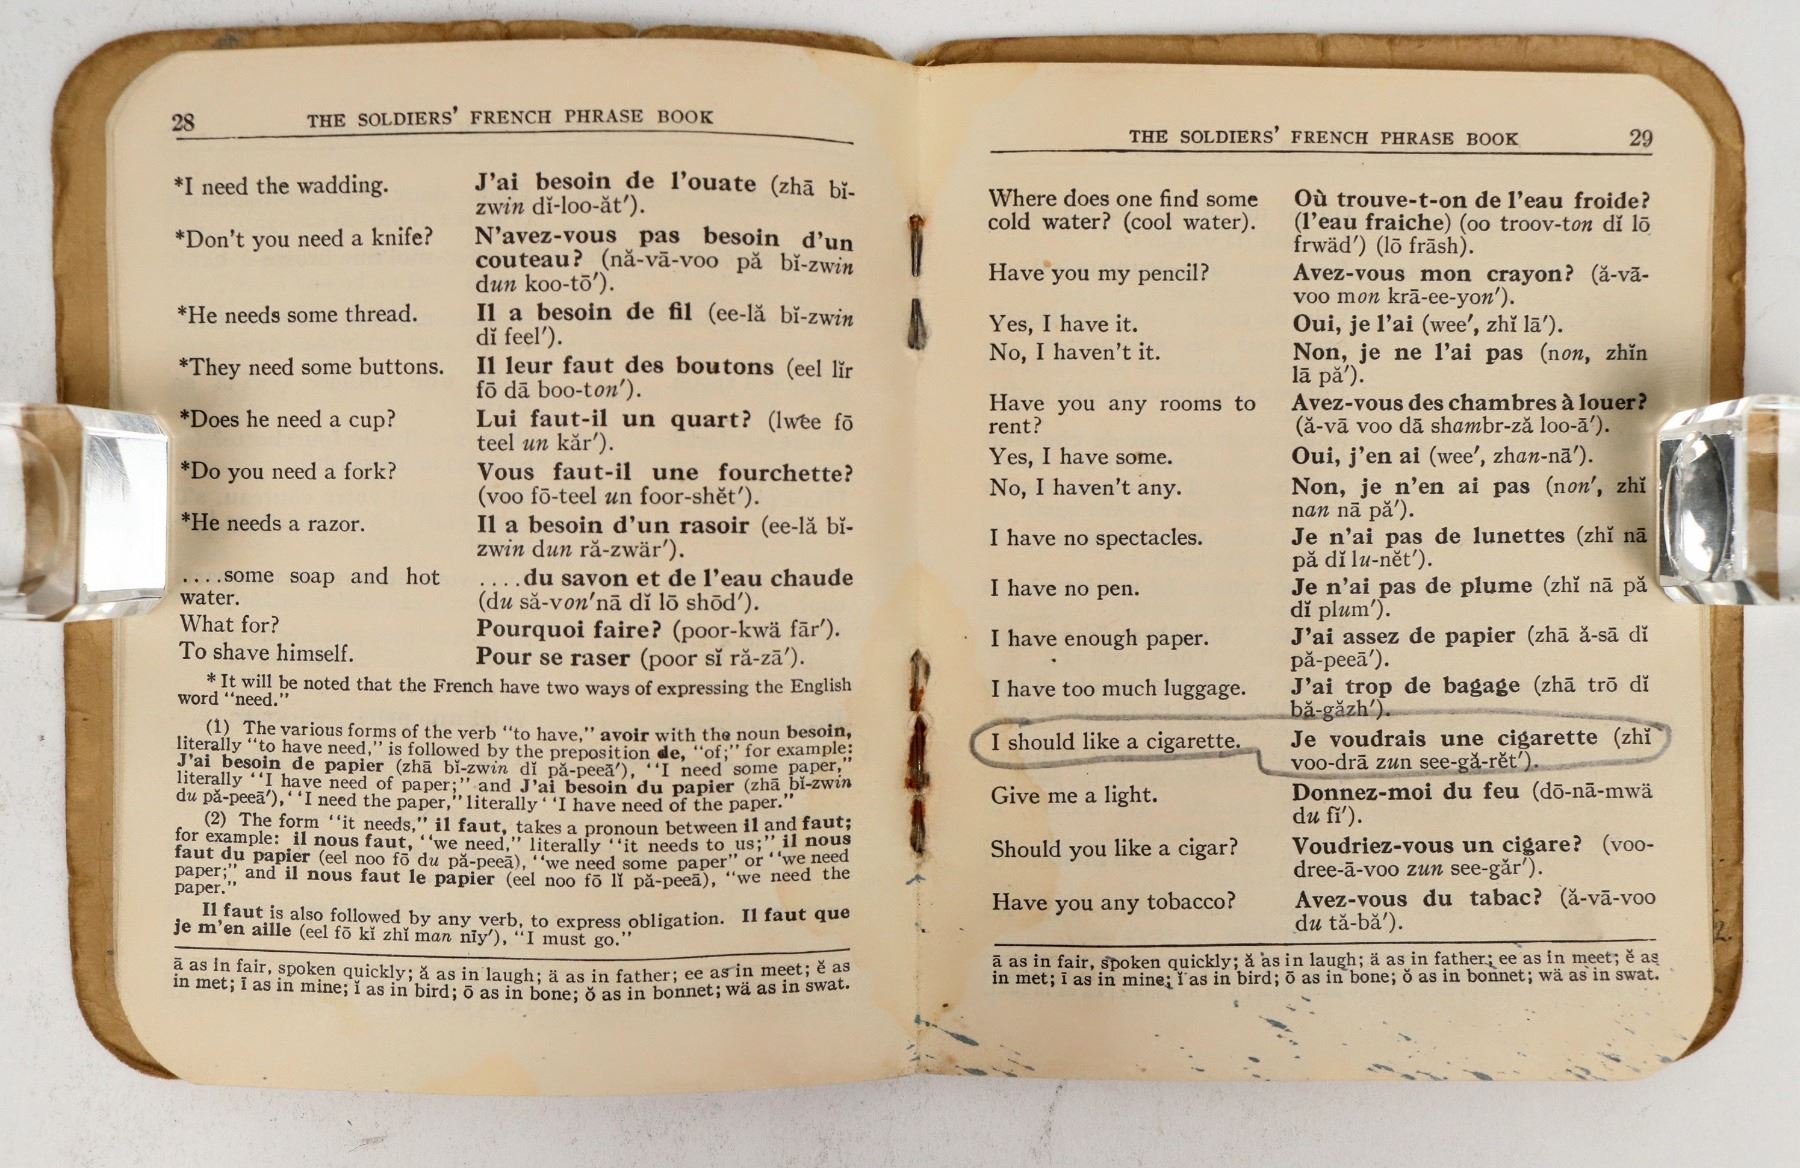 28 THE SOLDIERS' FRENCH PHRASE BOOK
*I need the wadding.
J'ai besoin de l'ouate (zhā bĭ-
zwin dĭ-loo-ăt′).
*Don't you need a knife?
N'avez-vous pas besoin d'un
couteau? (nă-vā-voo pă bĭ-zwin
dun koo-tō′).
*He needs some thread.
Il a besoin de fil (ee-lă bĭ-zwin
dĭ feel′).
*They need some buttons.
Il leur faut des boutons (eel lĭr
fō dā boo-ton′).
*Does he need a cup?
Lui faut-il un quart? (lwee fō
teel un kăr′).
*Do you need a fork?
Vous faut-il une fourchette?
(voo fō-teel un foor-shĕt′).
*He needs a razor.
Il a besoin d'un rasoir (ee-lă bĭ-
zwin dun ră-zwär′).
....some soap and hot
water.
....du savon et de l'eau chaude
(du să-von′nā dĭ lō shōd′).
What for?
Pourquoi faire? (poor-kwä fār′).
To shave himself.
Pour se raser (poor sĭ ră-zā′).
* It will be noted that the French have two ways of expressing the English
word "need."
(1) The various forms of the verb "to have," avoir with the noun besoin,
literally "to have need," is followed by the preposition de, "of;" for example:
J'ai besoin de papier (zhā bĭ-zwin dĭ pă-peeā′), "I need some paper,"
literally "I have need of paper;" and J'ai besoin du papier (zhā bĭ-zwin
du pă-peeā′), "I need the paper," literally "I have need of the paper."
(2) The form "it needs," il faut, takes a pronoun between il and faut;
for example: il nous faut, "we need," literally "it needs to us;" il nous
faut du papier (eel noo fō du pă-peeā), "we need some paper" or "we need
paper;" and il nous faut le papier (eel noo fō lĭ pă-peeā), "we need the
paper."
Il faut is also followed by any verb, to express obligation. Il faut que
je m'en aille (eel fō kĭ zhĭ man nīy′), "I must go."
ā as in fair, spoken quickly; ă as in laugh; ä as in father; ee as in meet; ĕ as
in met; ī as in mine; ĭ as in bird; ō as in bone; ŏ as in bonnet; wä as in swat.
THE SOLDIERS' FRENCH PHRASE BOOK 29
Where does one find some
cold water? (cool water).
Où trouve-t-on de l'eau froide?
(l'eau fraiche) (oo troov-ton dĭ lō
frwäd′) (lō frāsh).
Have you my pencil?
Avez-vous mon crayon? (ă-vā-
voo mon krā-ee-yon′).
Yes, I have it.
Oui, je l'ai (wee′, zhĭ lā′).
No, I haven't it.
Non, je ne l'ai pas (non, zhĭn
lā pă′).
Have you any rooms to
rent?
Avez-vous des chambres à louer?
(ă-vā voo dā shambr-ză loo-ā′).
Yes, I have some.
Oui, j'en ai (wee′, zhan-nā′).
No, I haven't any.
Non, je n'en ai pas (non′, zhĭ
nan nā pă′).
I have no spectacles.
Je n'ai pas de lunettes (zhĭ nā
pă dĭ lu-nĕt′).
I have no pen.
Je n'ai pas de plume (zhĭ nā pă
dĭ plum′).
I have enough paper.
J'ai assez de papier (zhā ă-sā dĭ
pă-peeā′).
I have too much luggage.
J'ai trop de bagage (zhā trō dĭ
bă-găzh′).
I should like a cigarette.
Je voudrais une cigarette (zhĭ
voo-drā zun see-gă-rĕt′).
Give me a light.
Donnez-moi du feu (dō-nā-mwä
du fĭ′).
Should you like a cigar?
Voudriez-vous un cigare? (voo-
dree-ā-voo zun see-găr′).
Have you any tobacco?
Avez-vous du tabac? (ă-vā-voo
du tă-bă′).
ā as in fair, spoken quickly; ă as in laugh; ä as in father; ee as in meet; ĕ as
in met; ī as in mine; ĭ as in bird; ō as in bone; ŏ as in bonnet; wä as in swat.